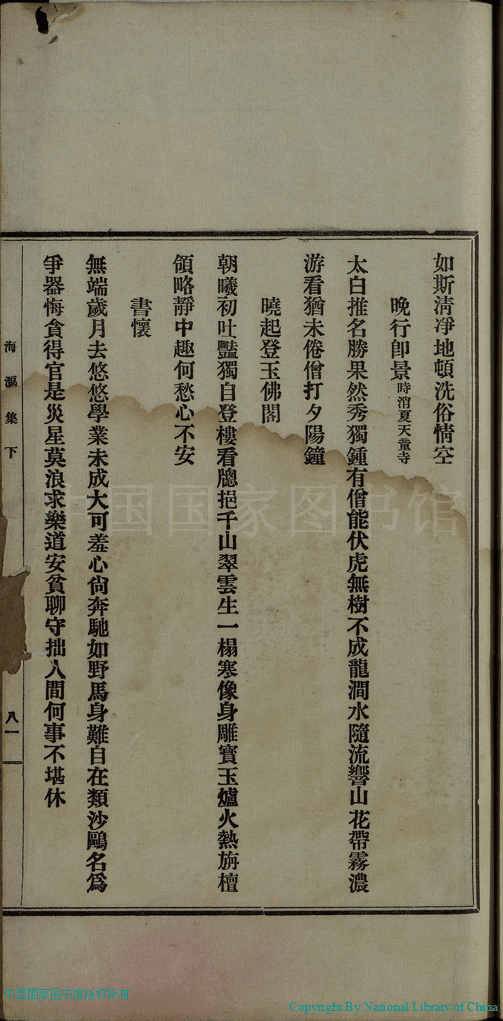 如斯清凈地頓洗俗情空
晚行卽景時消夏天童寺
太白推名勝果然秀獨鍾有僧能伏虎無樹不成龍澗水隨流響山花帶霧濃
游看猶未倦僧打夕陽鐘
曉起登玉佛閣
朝曦初吐豔獨自登樓看牕挹千山翠雲生一榻寒像身雕寶玉爐火熱旃檀
領略靜中趣何愁心不安
書懷
無端歲月去悠悠學業未成大可羞心尙奔馳如野馬身難自在類沙鷗名爲
爭器悔貪得官是災星莫浪求樂道安貧聊守拙人間何事不堪休
海漚集下
八一
中国国家图书馆
中国国家图书馆版权所有
Copyright By National Library of China